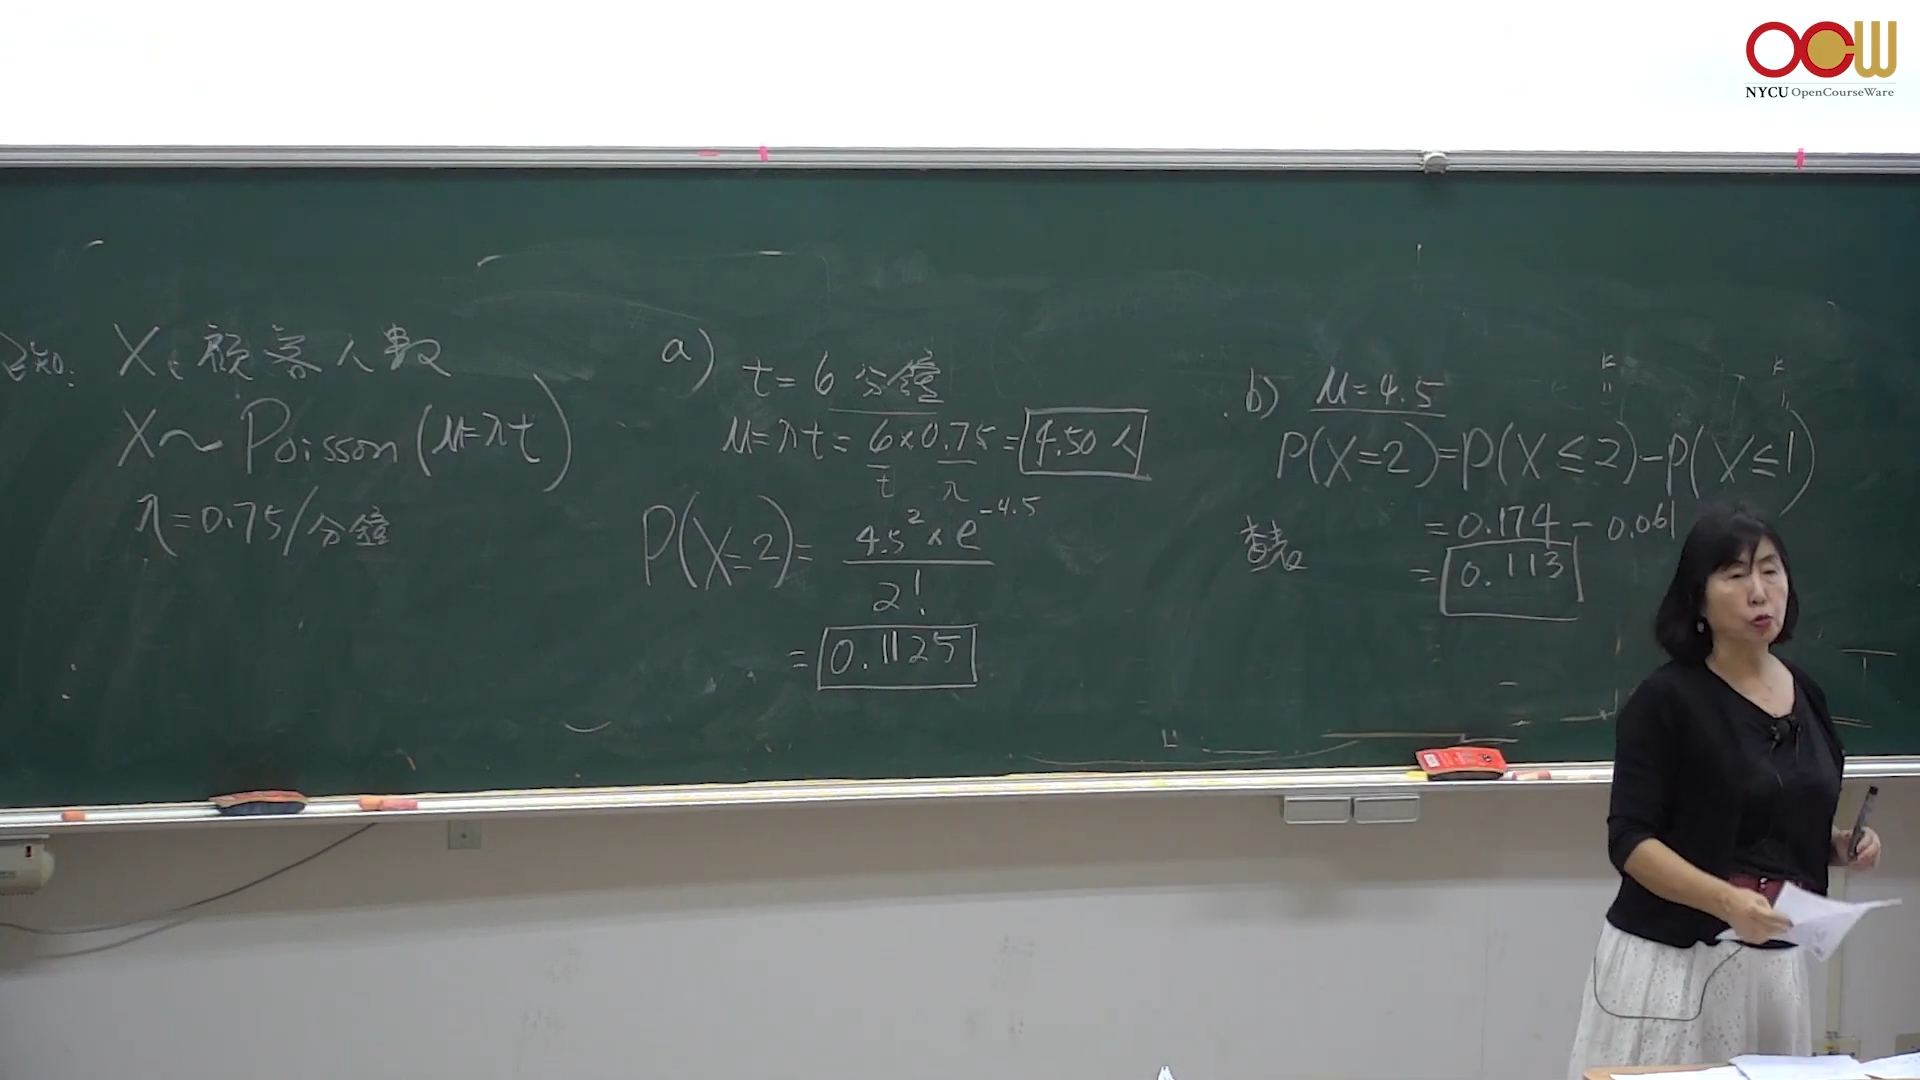 OCW
NYCU OpenCourseWare
已知: X: 顧客人數
X~Poisson(μ=λt)
λ=0.75/分鐘
a) t=6分鐘
μ=λt=6×0.75=4.50人
t λ
P(X=2)=4.5²×e^-4.5
2!
=0.1125
k k
" "
b) μ=4.5
P(X=2)=P(X≤2)-P(X≤1)
查表 =0.174-0.061
=0.113